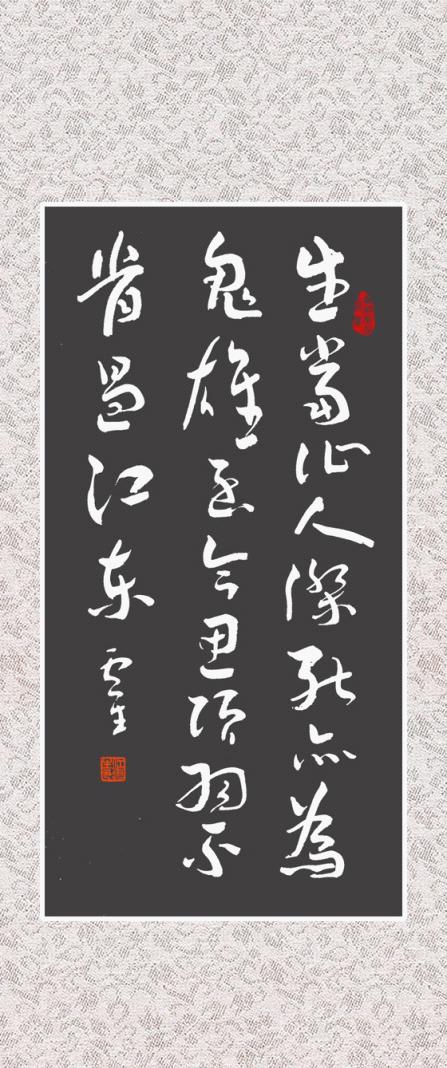 生當作人傑死亦為
鬼雄至今思項羽不
肯過江东